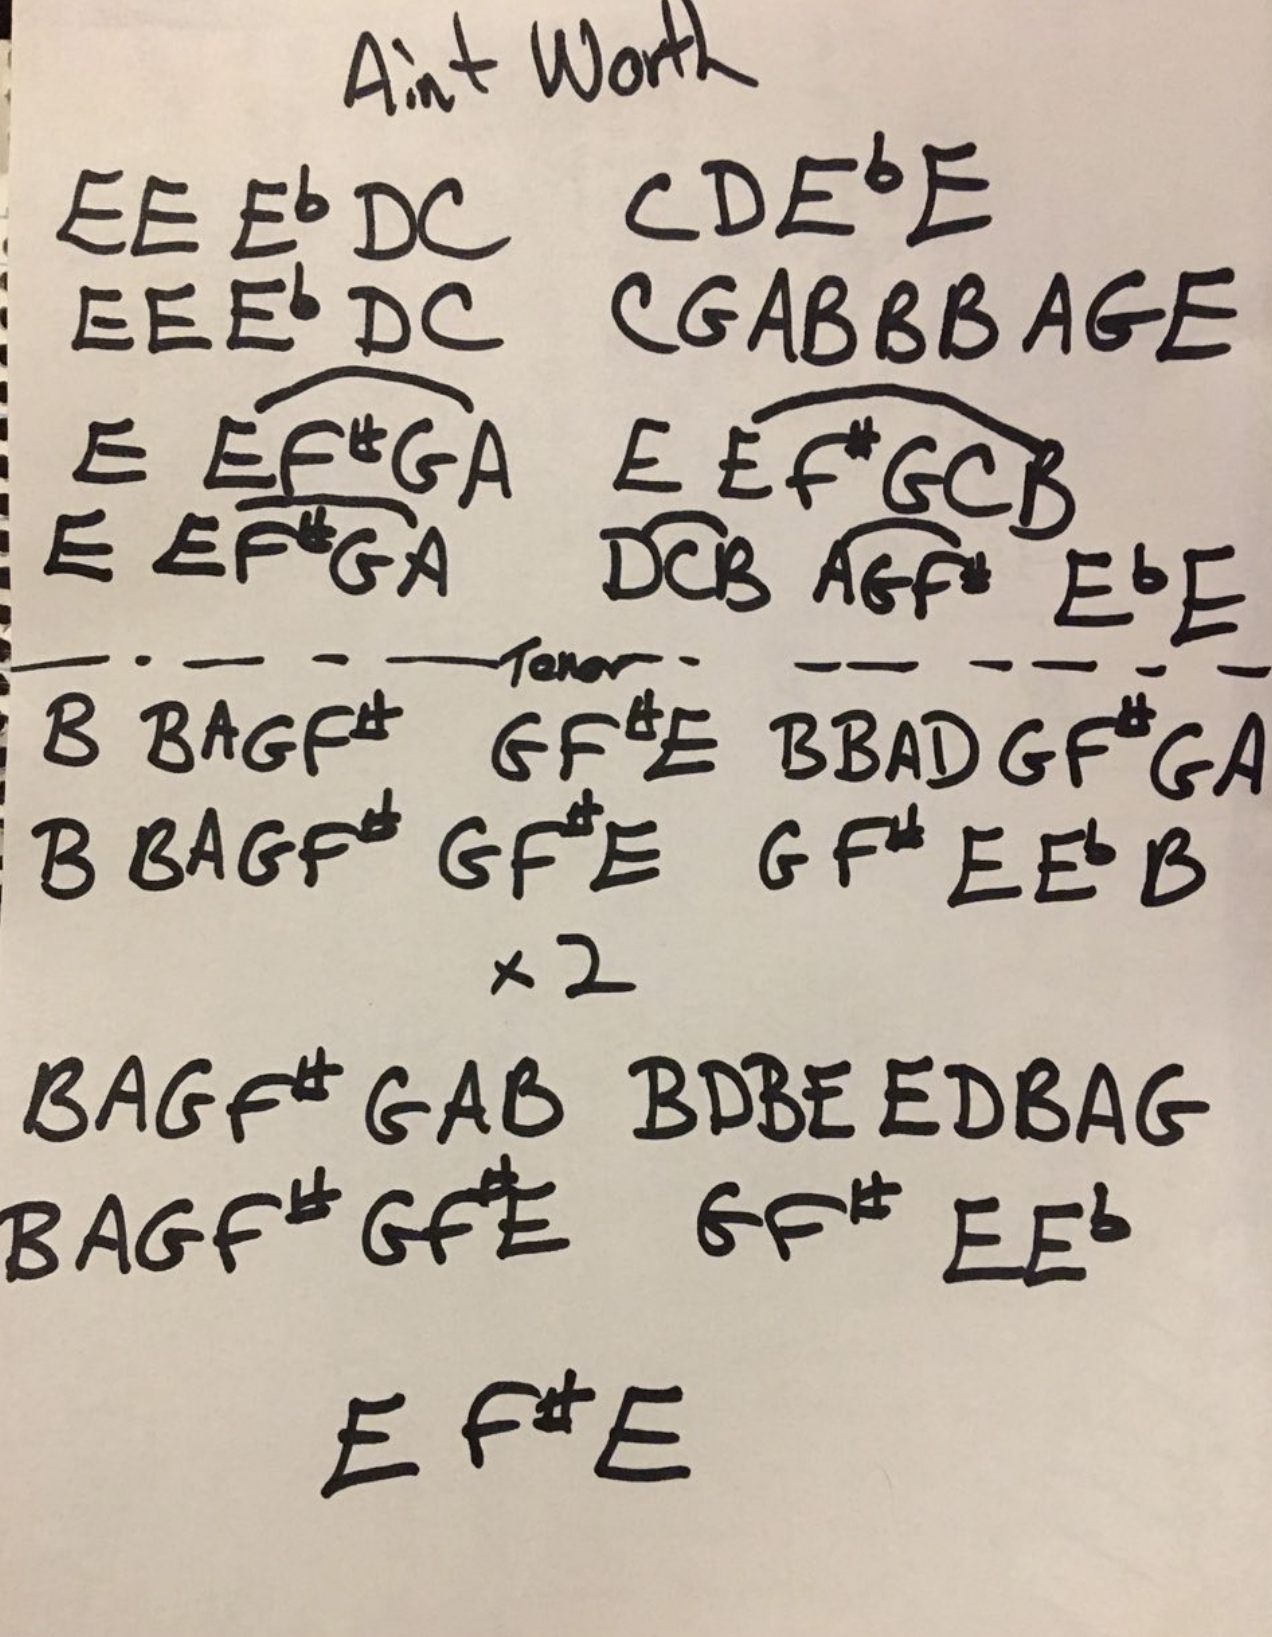 Ain't Worth
EE E♭ DC CDE♭E
EEE♭ DC CGABBB AGE
E EF#GA E EF#GCB
E EF#GA DCB AGF# E♭E
Tenor
B BAGF# GF#E BBAD GF#GA
B BAGF# GF#E GF# EE♭ B
x2
BAGF# GAB BDBE EDBAG
BAGF# GF#E GF# EE♭
E F#E